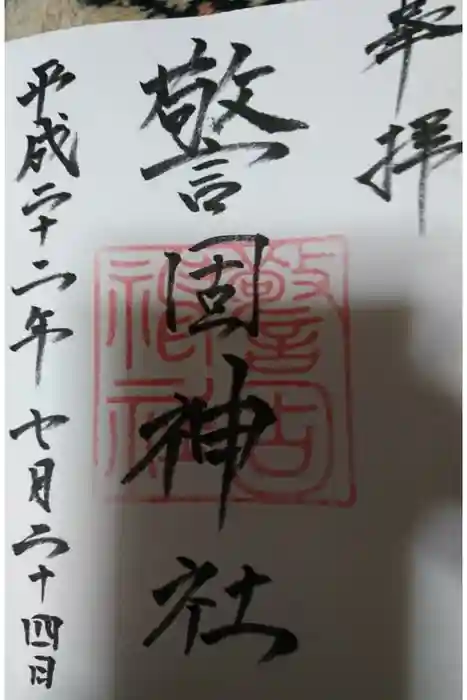 奉拝
警固神社
平成二十二年七月二十四日
警固
神社